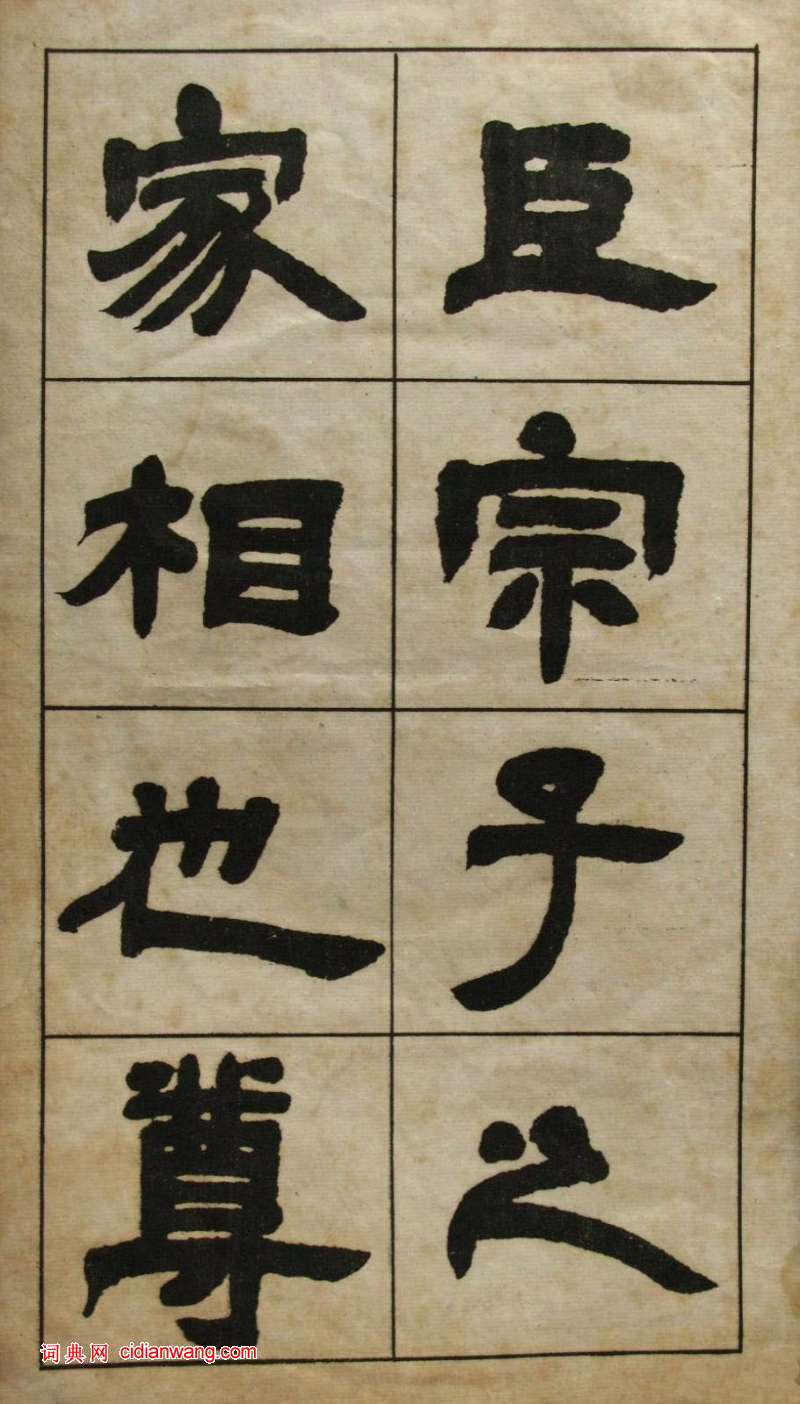 臣宗子之
家相也尊
词典网 cidianwang.com